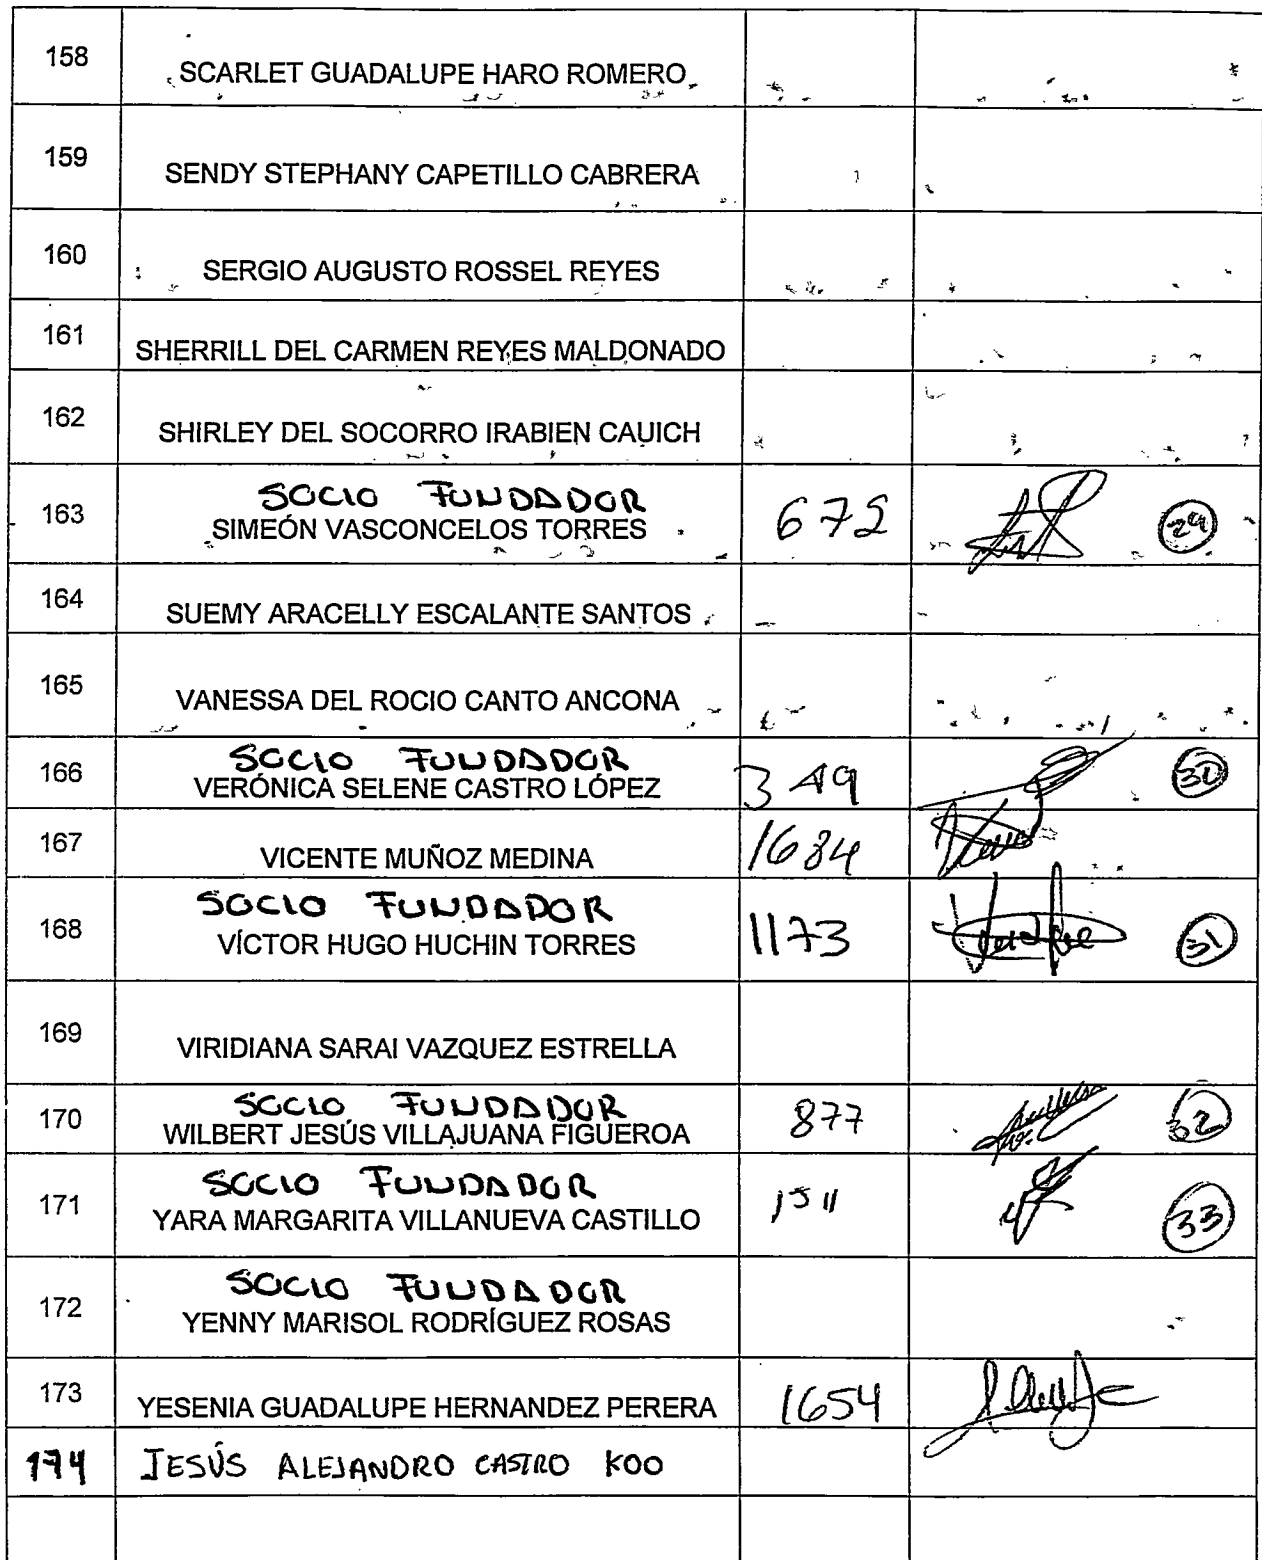 158
SCARLET GUADALUPE HARO ROMERO
159
SENDY STEPHANY CAPETILLO CABRERA
160
SERGIO AUGUSTO ROSSEL REYES
161
SHERRILL DEL CARMEN REYES MALDONADO
162
SHIRLEY DEL SOCORRO IRABIEN CAUICH
163
SOCIO FUNDADOR
SIMEÓN VASCONCELOS TORRES
672
29
164
SUEMY ARACELLY ESCALANTE SANTOS
165
VANESSA DEL ROCIO CANTO ANCONA
166
SOCIO FUNDADOR
VERÓNICA SELENE CASTRO LÓPEZ
349
30
167
VICENTE MUÑOZ MEDINA
1684
168
SOCIO FUNDADOR
VÍCTOR HUGO HUCHIN TORRES
1173
31
169
VIRIDIANA SARAI VAZQUEZ ESTRELLA
170
SOCIO FUNDADOR
WILBERT JESÚS VILLAJUANA FIGUEROA
877
32
171
SOCIO FUNDADOR
YARA MARGARITA VILLANUEVA CASTILLO
1511
33
172
SOCIO FUNDADOR
YENNY MARISOL RODRÍGUEZ ROSAS
173
YESENIA GUADALUPE HERNANDEZ PERERA
1654
174
JESÚS ALEJANDRO CASTRO KOO